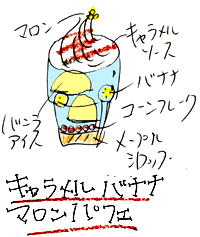 マロン
キャラメル
ソース
バナナ
コーンフレーク
バニラ
アイス
メープル
シロップ
キャラメル バナナ
マロンパフェ